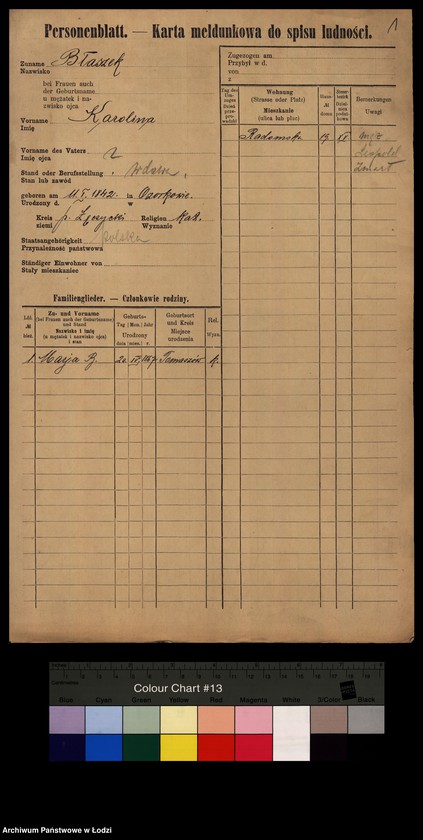 Personenblatt. — Karta meldunkowa do spisu ludności.
1
Zuname
Nazwisko
Błaszek
bei Frauen auch
der Geburtsname
u mężatek i na-
zwisko ojca
Vorname
Imię
Karolina
Vorname des Vaters
Imię ojca
Stand oder Berufsstellung
Stan lub zawód
wdowa
geboren am 11. V. 1842. in Ozorkowie.
Urodzony d. w
Kreis p. Łęczycki Religion Kat.
ziemi Wyznanie
Staatsangehörigkeit
Przynależność państwowa
polska
Ständiger Einwohner von
Stały mieszkaniec
Zugezogen am
Przybył w d.
von
z
Wohnung
(Strasse oder Platz)
Mieszkanie
(ulica lub plac)
Bemerkungen
Uwagi
Radomska 13 VI mąż
Leopold
zmarł
Familienglieder. — Członkowie rodziny.
Zu- und Vorname
(bei Frauen auch der Geburtsname)
und Stand
Nazwisko i imię
(u mężatek i nazwisko ojca)
i stan
Geburts-
Tag | Mon. | Jahr
Urodzony
dnia | mies. | r.
Geburtsort
und Kreis
Miejsce
urodzenia
Rel.
Wyzn.
1. Marja B. 20 IV 1867 Tomaszów K.
Colour Chart #13
Blue Cyan Green Yellow Red Magenta White 3/Color Black
Archiwum Państwowe w Łodzi